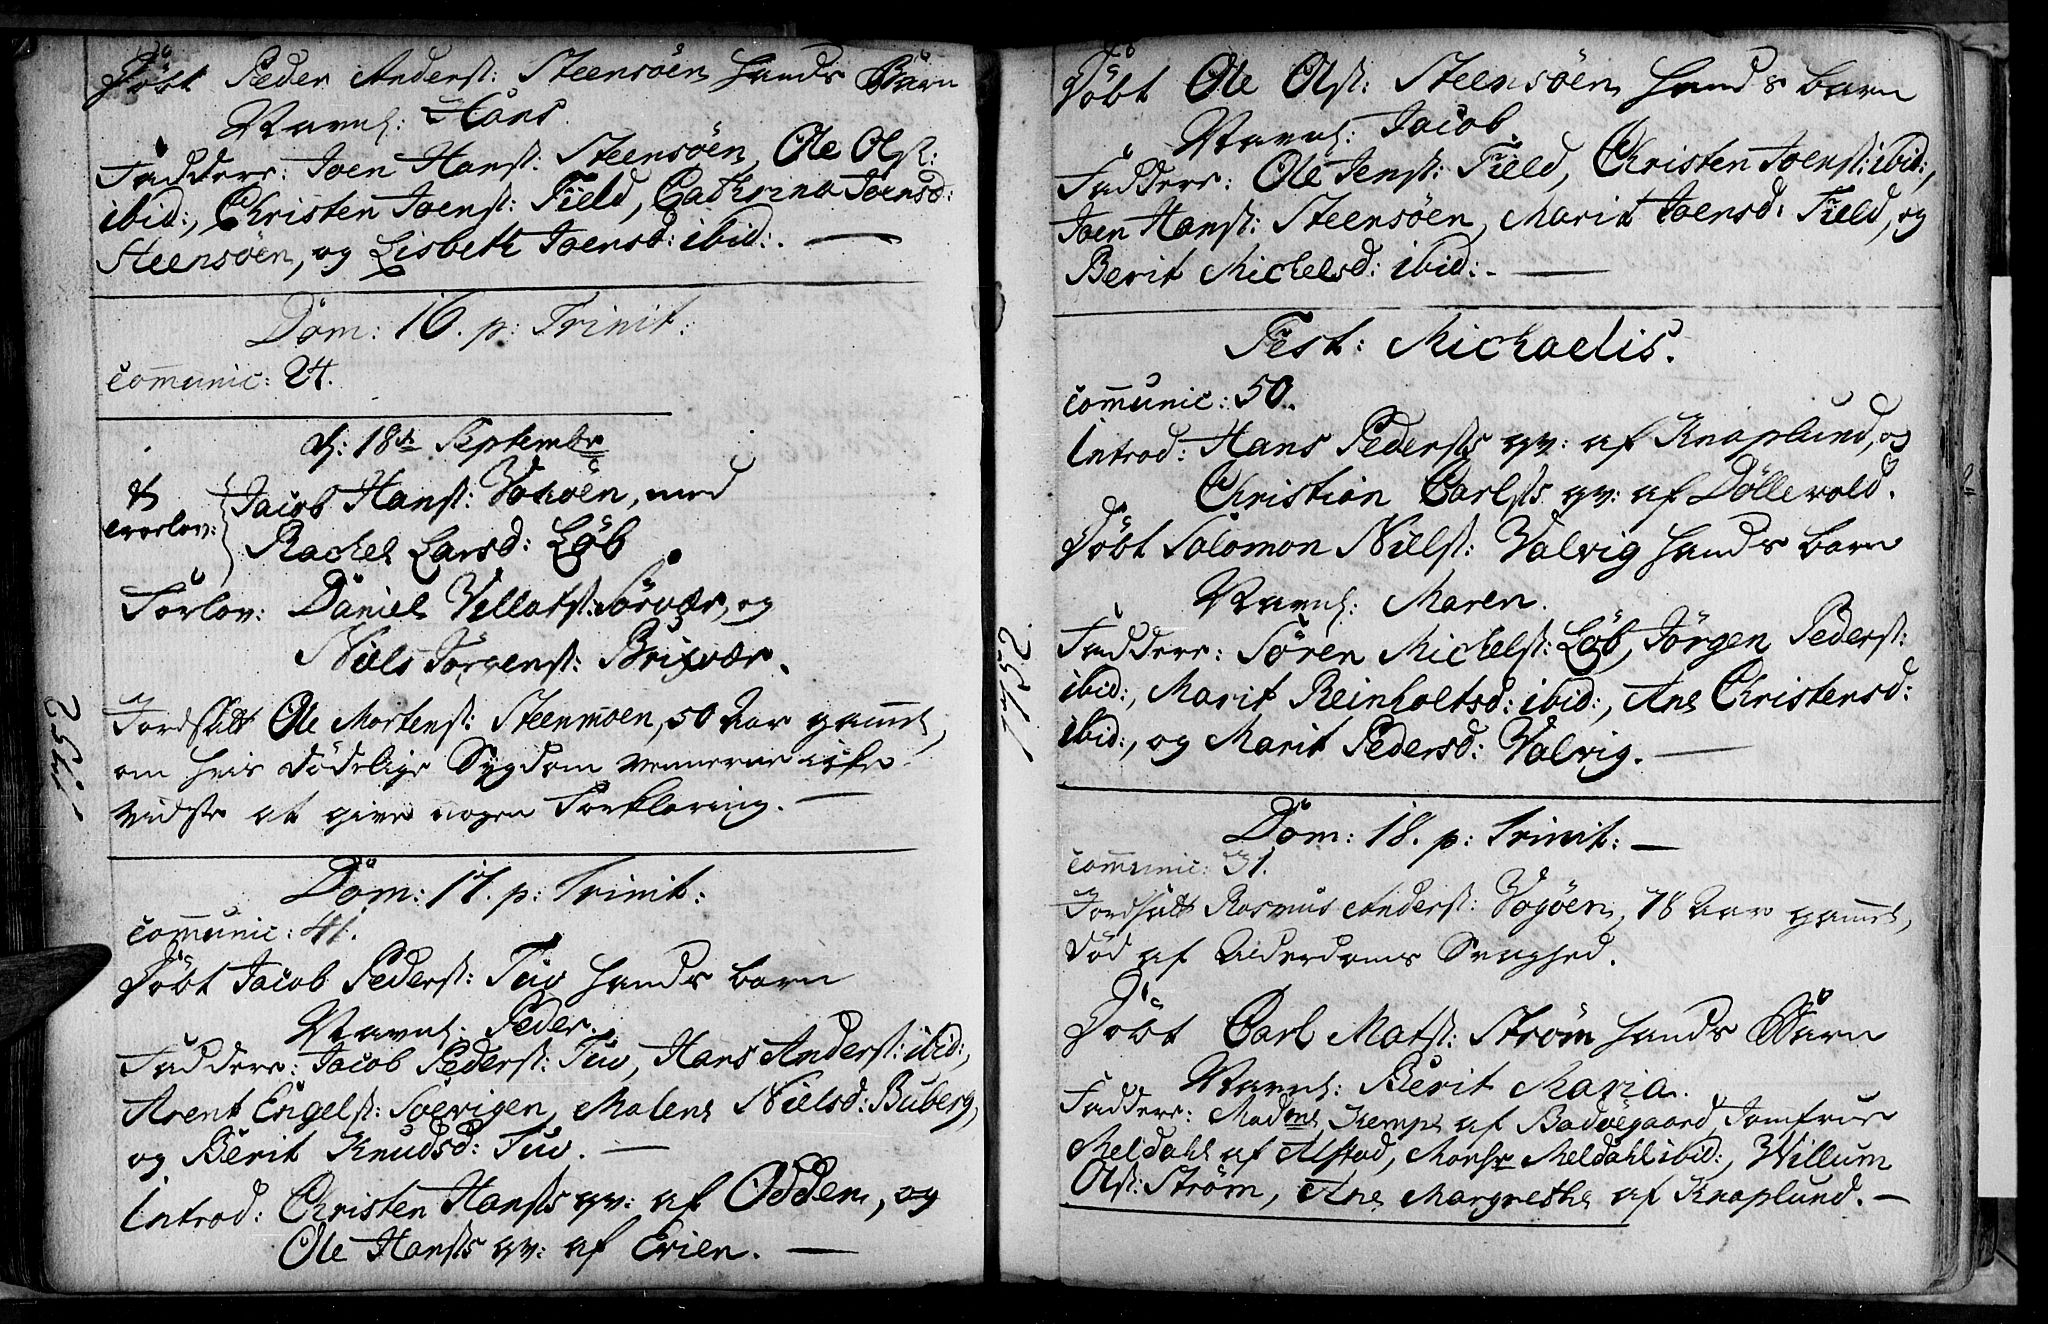 Döbt Peder Anderst: Steensöen hands Barn
Navnl: Hans.
Faddere: Joen Hanst: Steensöen, Ole Olst:
ibid:, Christen Joenst: Field, Cathrina Joensd:
Steensöen, og Lisbeth Joensd: ibid:. —
Dom: 16. p: Trinit:
Comunic: 24.
d: 18de Septembr
Jacob Hanst: med
Rachel Larsd: Löb
Forlov: Daniel Villatst: Sörvær, og
Niels Jörgenst: Brixvær.
Jordfæstt Ole Mortenst: Steenmoen, 50 Aar gamel,
om hvis dödelige Sygdom Vennerne icke
vidste at give nogen Forklaring. —
1752.
Dom: 17. p: Trinit:
Comunic: 41.
Döbt Jacob Pederst: Tuv hands barn
Navnl: Peder.
Faddere: Jacob Pederst: Tuv, Hans Anderst: ibid:,
Arent Engelst: Soevigen, Malene Nielsd: Buberg,
og Berit Knudsd: Tuv. —
Introd: Christen Hansts qv: af Odden, og
Ole Hansts qv: af Erien. —
Döbt Ole Olst: Steensöen hands barn
Navnl: Jacob.
Faddere: Ole Jenst: Field, Christen Joenst: ibid:,
Joen Hanst: Steensöen, Marit Joensd: Field, og
Berit Michelsd: ibid:. —
Fest: Michaelis.
Comunic: 50.
Introd: Hans Pedersts qv: af Knaplund, og
Christian Carlsts qv: af Döllevold.
Döbt Salomon Nielst: Valvig hands barn
Navnl: Maren.
Faddere: Sören Michelst: Löb, Jörgen Pederst:
ibid:, Marit Reinholtsd: ibid:, Ane Christensd:
ibid:, og Marit Pedersd: Valvig. —
1752.
Dom: 18. p: Trinit: —
Comunic: 31.
Jordfæstt Rasmus Anderst: Vogöen, 78 Aar gamel,
död af Alderdoms Svaghed.
Döbt Carl Matst: Ström hands Barn
Navnl: Berit Maria.
Faddere: Madme Kempe af Badöegaard, Jomfrue
Meldahl af Alstad, Monsr Meldahl ibid:, Willum
Olst: Ström, Ane Margrethe af Knaplund. —